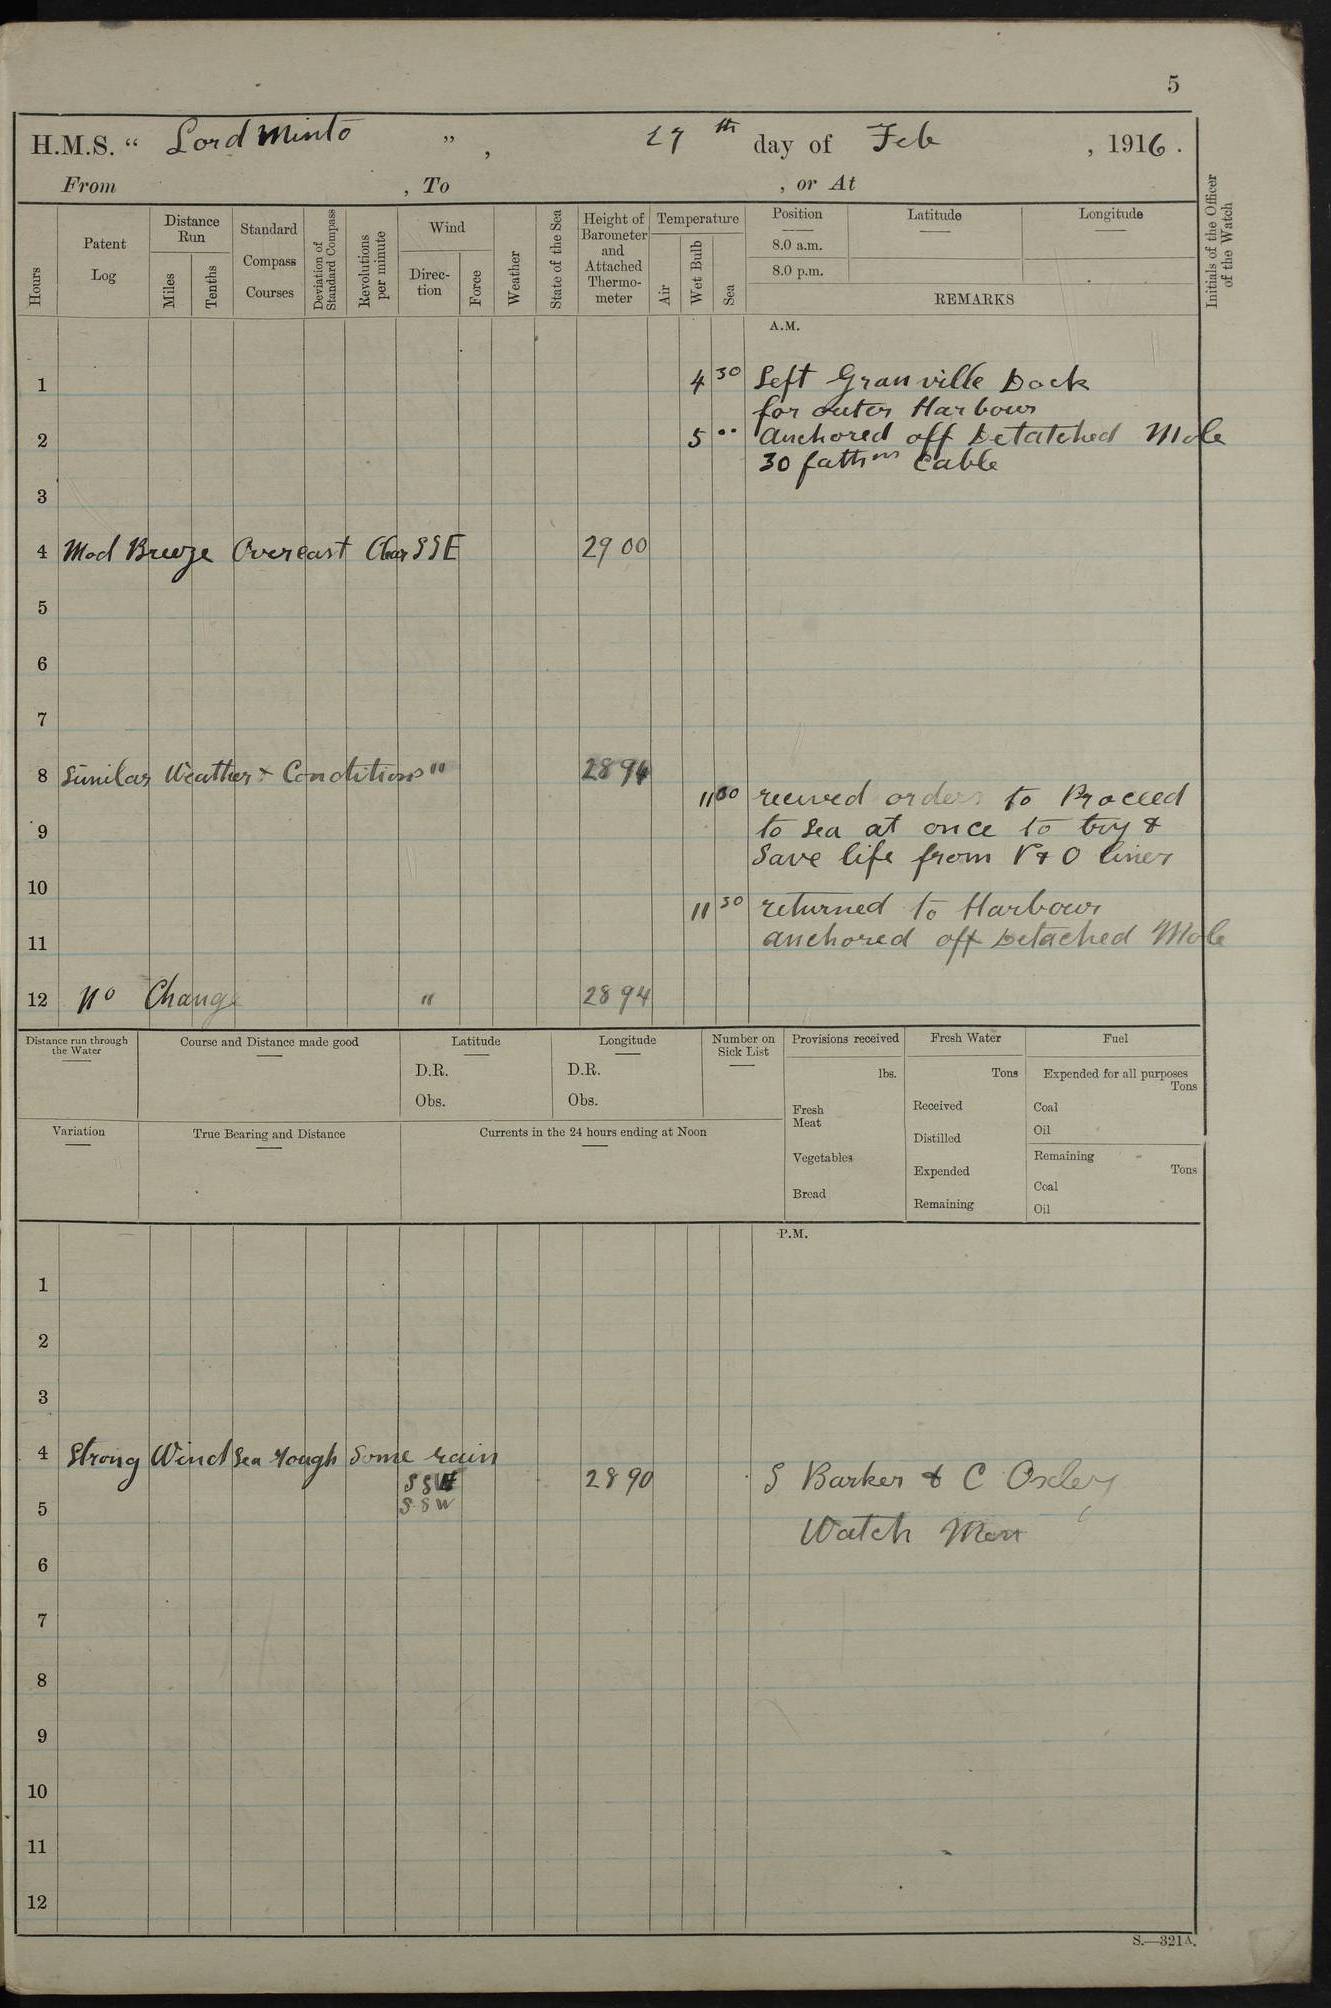 5
H.M.S. “ Lord Minto ” , 27 th day of Feb , 1916 .
From , To , or At
Hours
Patent Log
Distance Run
Miles
Tenths
Standard Compass Courses
Deviation of Standard Compass
Revolutions per minute
Wind
Direc-tion
Force
Weather
State of the Sea
Height of Barometer and Attached Thermo-meter
Temperature
Air
Wet Bulb
Sea
Position Latitude Longitude
8.0 a.m.
8.0 p.m.
REMARKS
Initials of the Officer of the Watch
A.M.
1 4 30 Left Granville Dock
for outer Harbour
2 5 •• anchored off Detatched Mole
30 fathms Cable
3
4 Mod Breeze Overcast Clear SSE 29 00
5
6
7
8 Similar Weather & Conditions " 28 94
11 00 recived orders to Proceed
9 to Sea at once to try &
Save life from P & O liner
10
11 30 returned to Harbour
11 anchored off Detached Mole
12 no Change " 28 94
Distance run through the Water
Course and Distance made good
Latitude
D.R.
Obs.
Longitude
D.R.
Obs.
Number on Sick List
Provisions received
lbs.
Fresh Meat
Vegetables
Bread
Fresh Water
Tons
Received
Distilled
Expended
Remaining
Fuel
Expended for all purposes
Tons
Coal
Oil
Remaining
Tons
Coal
Oil
Variation
True Bearing and Distance
Currents in the 24 hours ending at Noon
P.M.
1
2
3
4 Strong Wind Sea rough Some rain
SSW 28 90 S Barker & C Oxley
5 SSW
Watch Men
6
7
8
9
10
11
12
S.—321A.